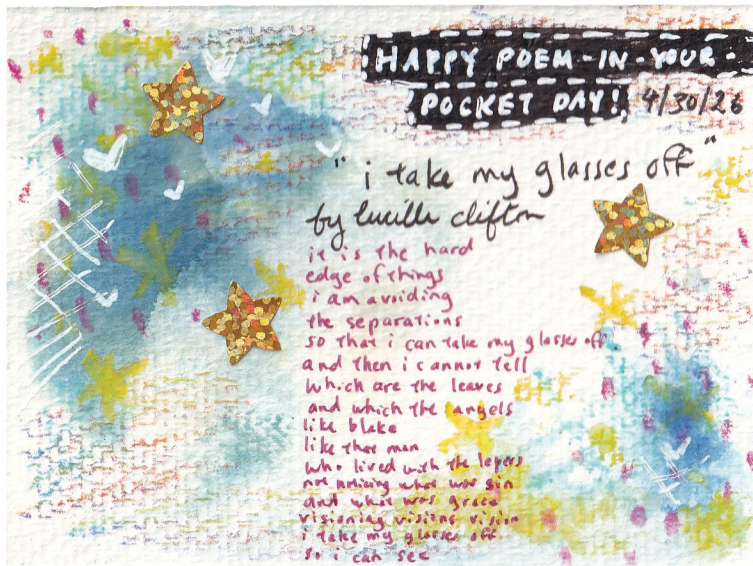 HAPPY POEM-IN-YOUR-
POCKET DAY! 4/30/26
"i take my glasses off"
by lucille clifton
it is the hard
edge of things
i am avoiding
the separations
so that i can take my glasses off
and then i cannot tell
which are the leaves
and which the angels
like blake
like that man
who lived with the lepers
not noticing what was sin
and what was grace
visioning visions vision
i take my glasses off
so i can see